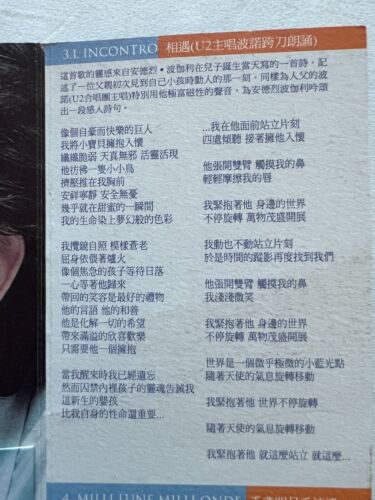 3.L INCONTRO 相遇(U2主唱波諾跨刀朗誦)
這首歌的靈感來自安德烈·波伽利在兒子誕生當天寫的一首詩，記
述了一位父親初次見到自己小孩時動人的那一刻，同樣為人父的波
諾(U2合唱團主唱)特別用他極富磁性的聲音，為安德烈波伽利吟頌
出一段感人詩句。
像個自豪而快樂的巨人
我將小寶貝擁抱入懷
纖纖脆弱 天真無邪 活靈活現
他彷彿一隻小小鳥
擠壓推在我胸前
安祥寧靜 安全無憂
幾乎就在甜蜜的一瞬間
我的生命染上夢幻般的色彩
我攬鏡自照 模樣蒼老
屈身依偎著爐火
像個焦急的孩子等待日落
一心等著他歸來
帶回的笑容是最好的禮物
他的言語 他的和善
他是化解一切的希望
帶來滿溢的欣喜歡樂
只需要他一個擁抱
當我醒來時我已經遺忘
然而囚禁內裡孩子的靈魂告誡我
這新生的嬰孩
比我自身的性命還重要...
...我在他面前站立片刻
四處傾聽 接著擁他入懷
他張開雙臂 觸摸我的鼻
輕輕摩擦我的唇
我緊抱著他 身邊的世界
不停旋轉 萬物茂盛開展
我動也不動站立片刻
於是時間的蹤影再度找到我們
他張開雙臂 觸摸我的鼻
我淺淺微笑
我緊抱著他 身邊的世界
不停旋轉 萬物茂盛開展
世界是一個微乎極微的小藍光點
隨著天使的氣息旋轉移動
我緊抱著他 世界不停旋轉
隨著天使的氣息旋轉移動
我緊抱著他 就這麼站立 就這麼...
4. MILLE LUNE MILLE ONDE